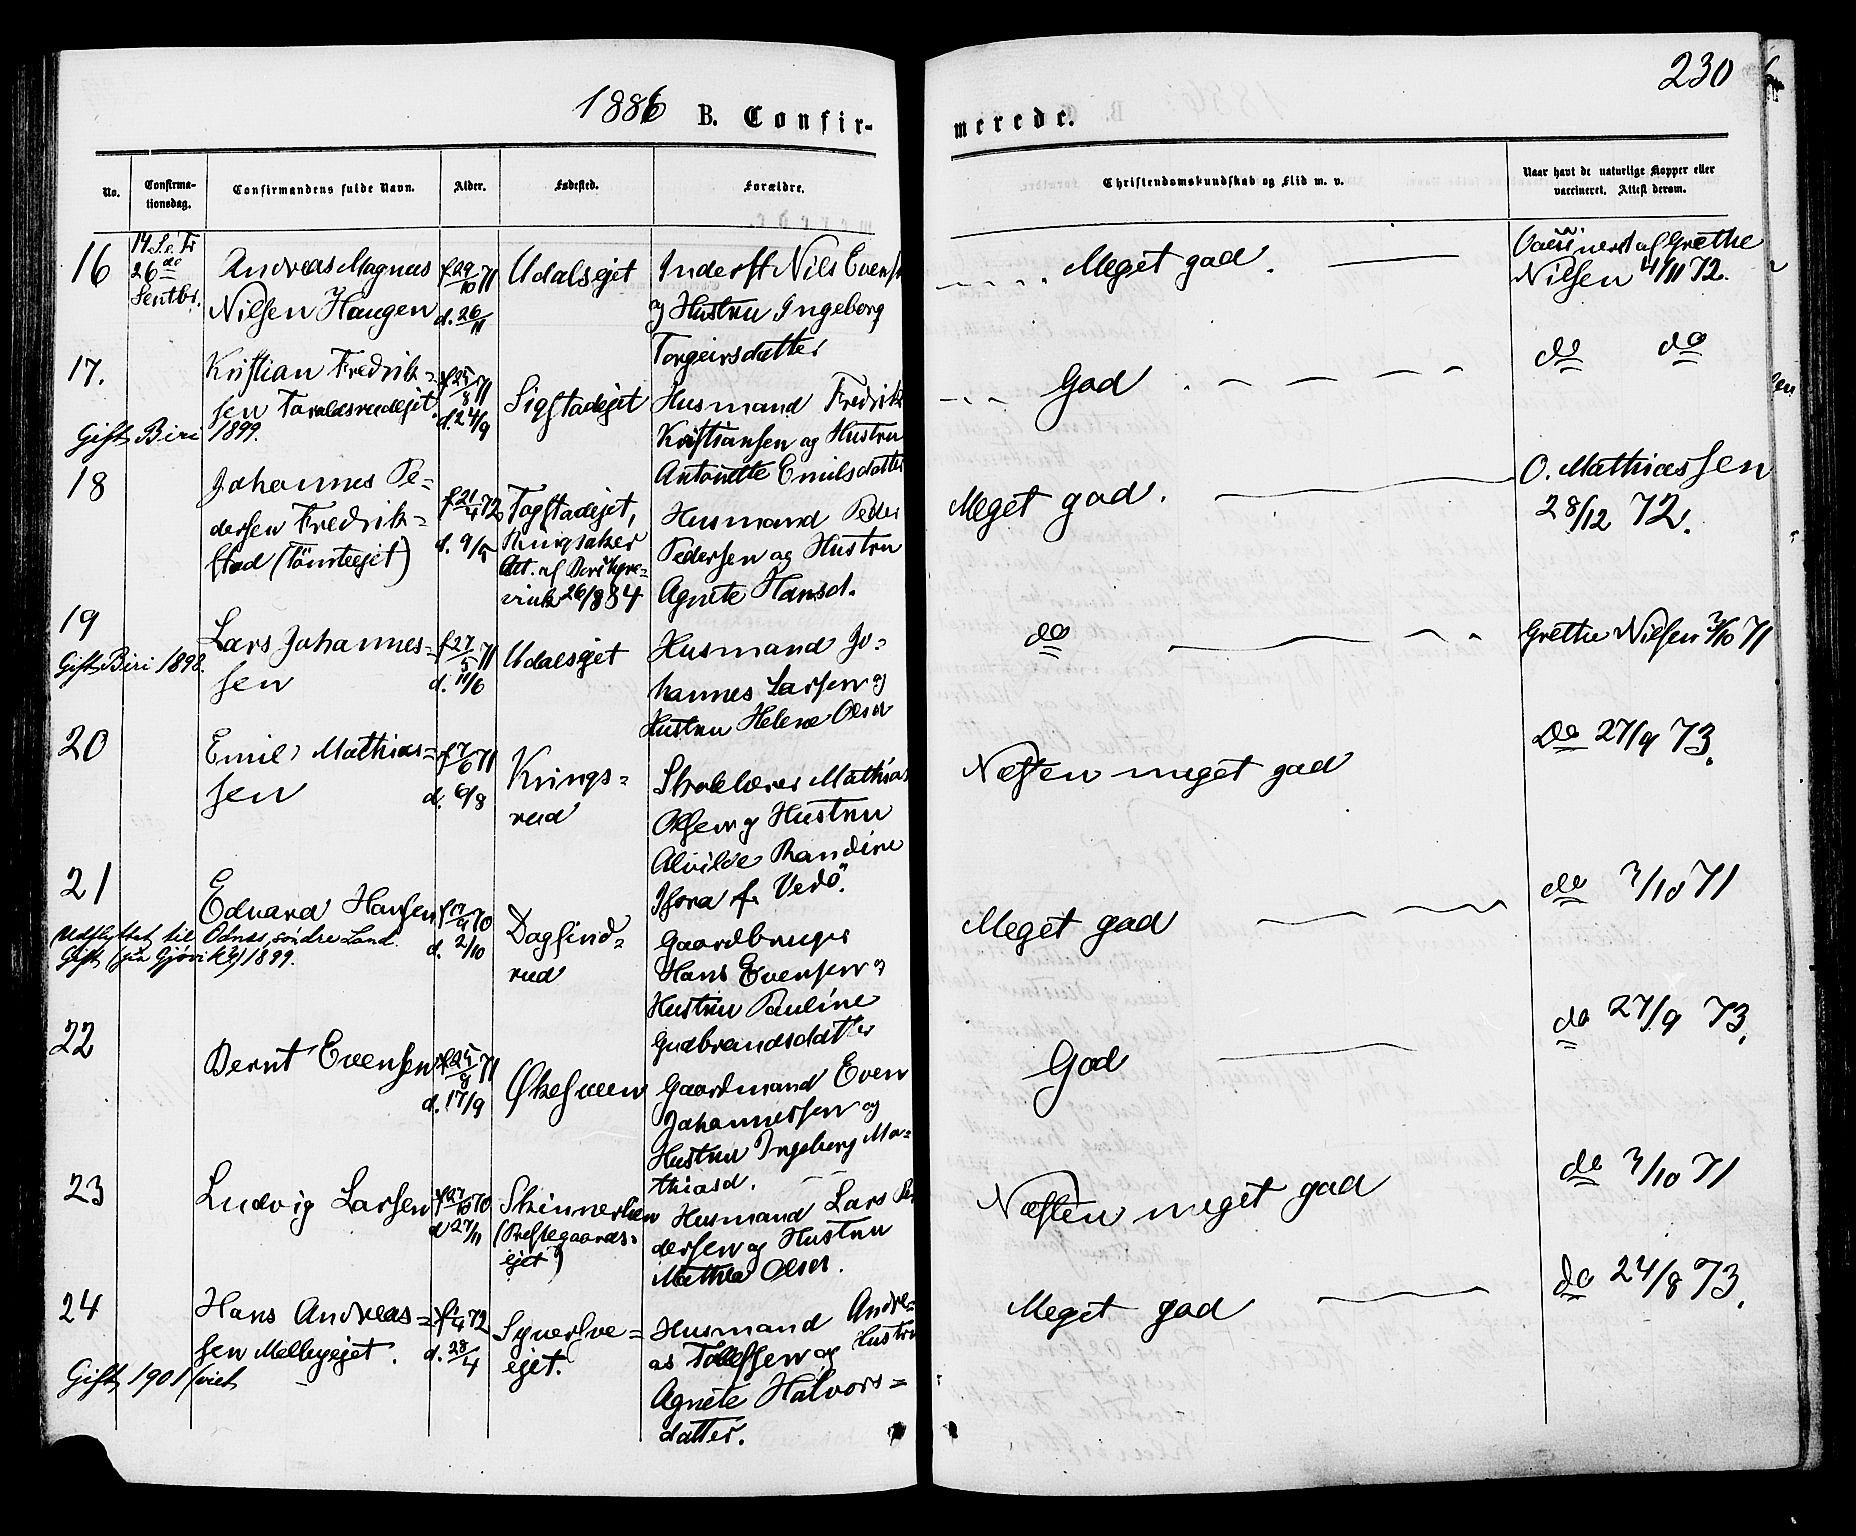 230
1886 B. Confir-
merede.
No.
Confirma-
tionsdag.
Confirmandens fulde Navn.
Alder.
Fødested.
Forældre.
Christendomskundskab og Flid m. v.
Naar havt de naturlige Kopper eller
vaccineret. Attest derom.
16
14 S. e. Tr
26de
Septbr.
Andreas Magnus
Nilsen Haugen
f 29/10 71
d. 26/11
Udalsejet
Inderst Nils Evens
og Hustru Ingeborg
Torgeirsdatter
Meget god.
Vaccineret af Grethe
Nilsen 4/11 72.
17.
Kristian Fredrik-
sen Taraldsrudejet
Gift Biri 1899.
f 25/8 71
d. 24/9
Sigstadejet
Husmand Fredrik
Kristiansen og Hustru
Antonette Emilsdatter
God
do do
18
Johannes Pe-
dersen Fredrik-
stad (Tömteejet)
f 21/4 72
d. 9/5
Togstadejet,
Ringsaker
Att. af
26/8 84
Husmand Peder
Pedersen og Hustru
Agnete Hansd.
Meget god.
O. Mathiassen
28/12 72.
19
Gift Biri 1898.
Lars Johannes-
sen
f 27/5 71
d. 11/6
Udalsejet
Husmand Jo-
hannes Larsen og
Hustru Helene Olsd
do
Grethe Nilsen 3/10 71
20
Emil Mathias-
sen
f 7/6 71
d. 6/8
Krings-
rud
Skolelærer Mathias
Olsen og Hustru
Alvilde Randine
Thora f. Vedö.
Næsten meget god
Do 27/9 73.
21
Edvard Hansen
Udflyttet til Odnes, søndre Land.
Gift (fra Gjøvik) 1899.
f 17/9 70
d. 2/10
Dagfind-
rud
Gaardbruger
Hans Evensen og
Hustru Pauline
Gudbrandsdatter
Meget god
do 3/10 71
22
Bernt Evensen
f 25/8 71
d. 17/9
Økelsveen
Gaardmand Even
Johannessen og
Hustru Ingeborg Ma-
thiasd.
God
do 27/9 73.
23
Ludvig Larsen
f 27/10 70
d 27/11
Skinnerlien
(Prestegaards-
ejet)
Husmand Lars Pe
dersen og Hustru
Mathea Olsd.
Næsten meget god
do 3/10 71
24
Hans Andreas-
sen Melbyejet.
Gift 1901 (viet
f 1/4 72
d. 28/4
Syversve-
ejet.
Husmand Andre-
as Tollefsen og Hustru
Agnete Halvors-
datter.
Meget god
do 24/8 73.